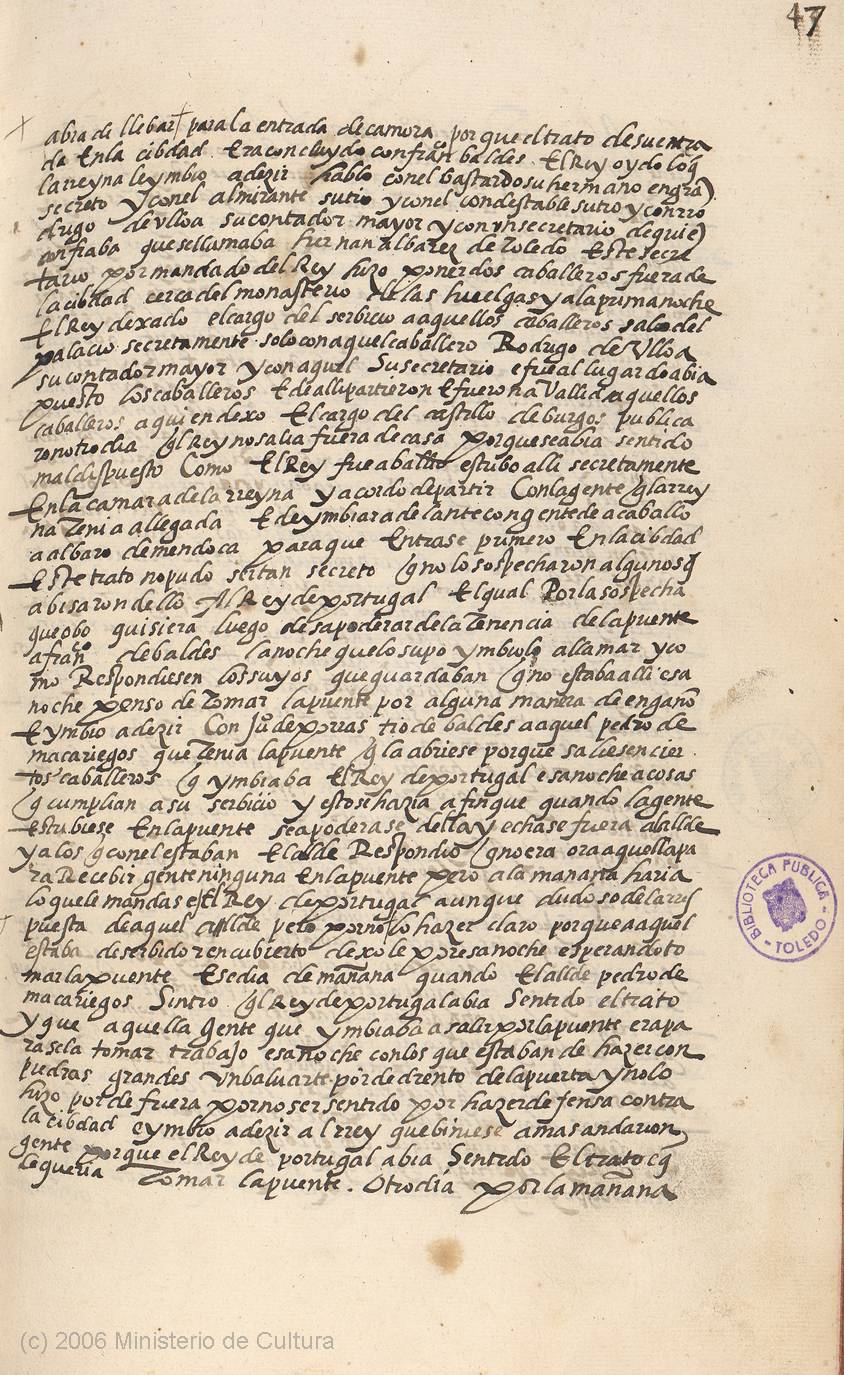 47
abra de llebar para la entrada de camora porque el trato desu entra
da En la cibdad Era concluydo con fran^co baldes. El Rey oydo loq
la reyna le ymbio adezir hablo con el bastardo su hermano en gra
secreto y con el almirante su tio y con el condestable su tio y con rro
drigo de vlloa su contador mayor y con vn secretario de quie
confiaba que se llamaba fernan albarez de toledo Este secre
tario por mandado del Rey hizo poner dos caballeros fuera de
la cibdad cerca del monasterio de las huelgas y a la prima noche
El Rey dexado el cargo del serbicio a aquellos caballeros salio del
palacio secretamente solo con aquel caballero Rodrigo de Vlloa
su contador mayor y con aquel Su secretario e fue al lugar do abia
puesto los caballeros E de alli partieron E fueron a Vallid aquellos
caballeros a quien dexo El cargo del castillo de burgos publica
ron otro dia ql Rey no salia fuera de casa porque se abia sentido
mal dispuesto Como El Rey fue aballid estubo alli secretamente
En la camara de la rreyna y acordo de partir Con la gente q la rrey
na Tenia allegada E de ymbiar adelante con gente de a caballo
a albaro de mendoca para que Entrase primero En la cibdad
Este trato no pudo ser tan secreto q no lo sospecharon algunos q
abisaron dello Al Rey de portugal El qual Por la sospecha
que obo quisiera luego desapoderar de la Tenencia de la puente
a fran^co de baldes la noche que lo supo ymbiolo allamar y co
mo Respondiesen los suyos que guardaban q no estaba alli esa
noche penso de Tomar la puente por alguna manera de engaño
E ymbio adezir Con Ju^o de porras tio de baldes a aquel pedro de
macariegos que Tenia la puente q la abriese porque saliesen cier
tos caballeros q ymbiaba El Rey de portugal esa noche a cosas
q cumplian a su serbicio y esto se hazia a fin que quando la gente
Estubiese En la puente se apoderase della y echase fuera al allde
y a los q con el estaban El allde Respondio q no era ora aquella pa
ra Recebir gente ninguna En la puente pero a la mañana haria
lo que le mandase El Rey de portugal aunque dudoso de la rres
puesta de aquel allde pero por no lo hazer claro porque a aquel
estaba deserbidor encubierto dexo le por esa noche esperando to
mar la puente Ese dia de mañana quando El allde pedro de
macariegos Sintio ql Rey de portugal abia Sentido el trato
y que aquella gente que ymbiaba a salir por la puente era pa
rasela tomar trabajo esa noche con los que estaban de hazer con
piedras grandes vn baluarte por de drento de la puerta y no lo
hizo por de fuera por no ser sentido por hazer defensa contra
la cibdad e ymbio adezir al rrey que biniese a mas andar con
gente porque el Rey de portugal abia Sentido El trato e q
le queria Tomar la puente. Otro dia por la mañana
BIBLIOTECA PUBLICA - TOLEDO -
(c) 2006 Ministerio de Cultura